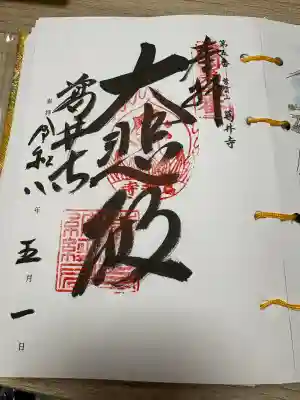 葛井寺
奉拝
大悲殿
葛井寺
奉拝 令和八年五月一日